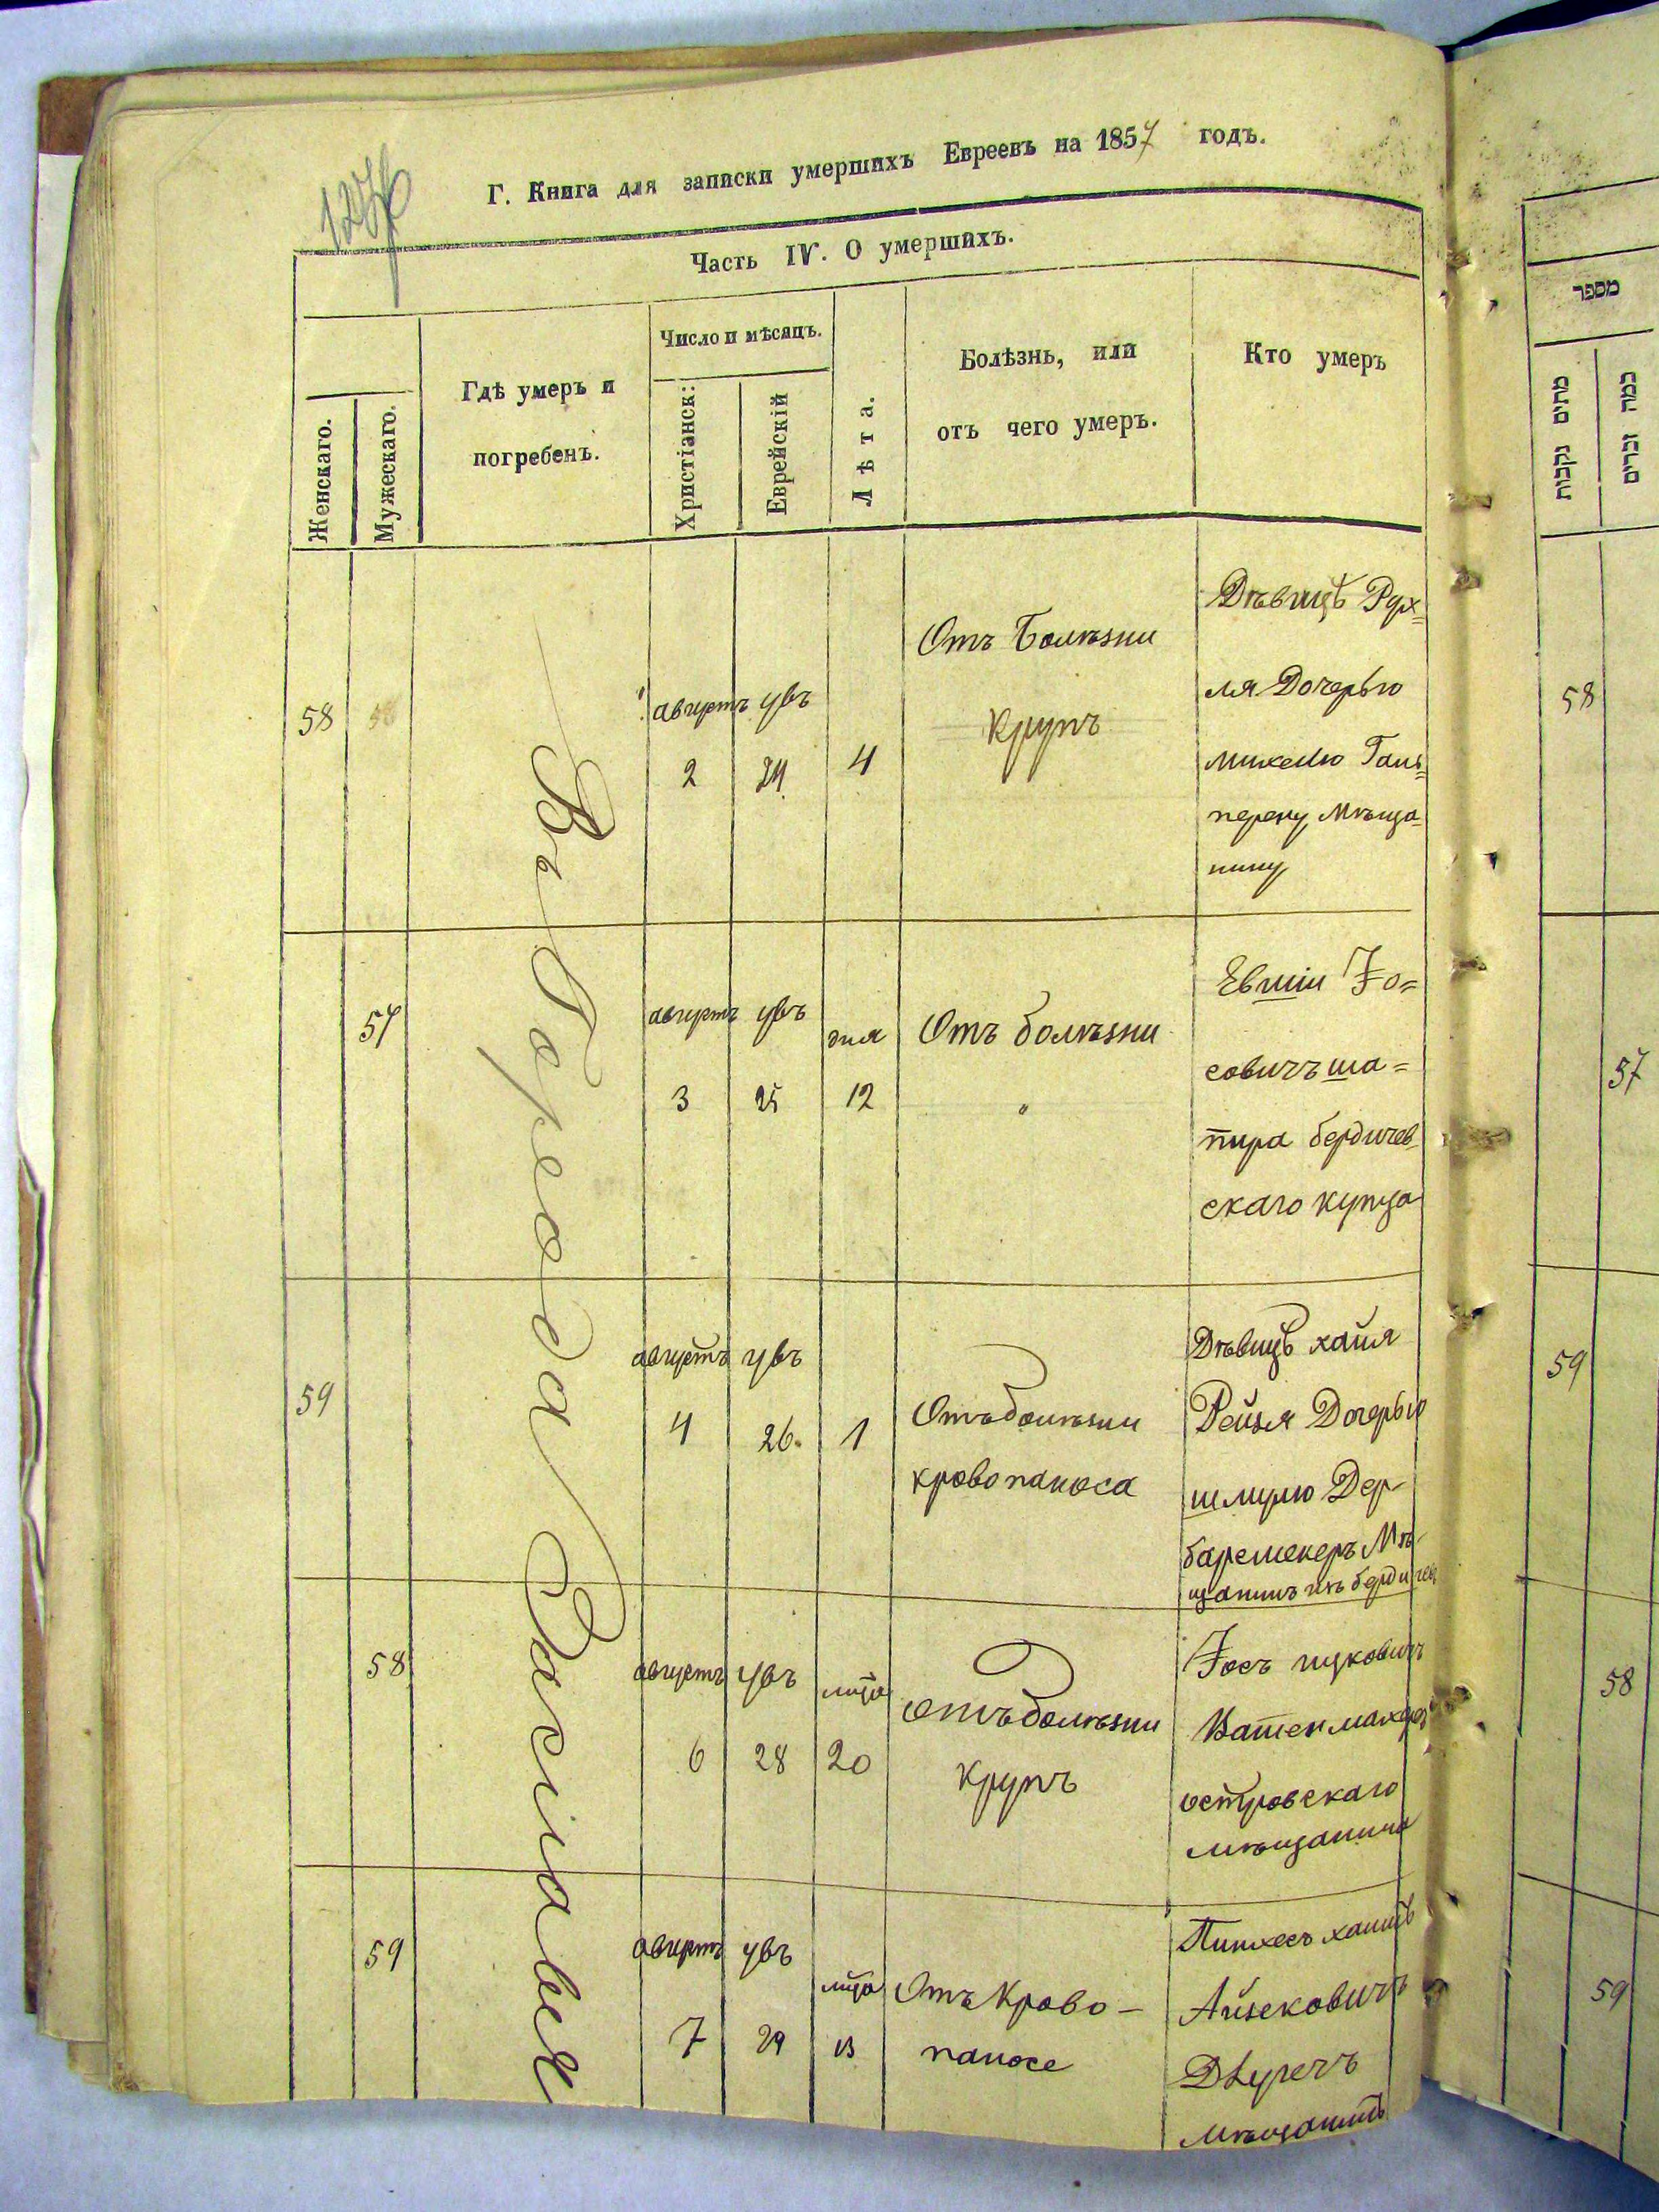 Г. Книга для записки умершихъ Евреевъ на 1857 годъ.
Часть IV. О умершихъ.
Женскаго.
Мужескаго.
Гдѣ умеръ и
погребенъ.
Число и мѣсяцъ.
Христіанск:
Еврейскій
Лѣта.
Болѣзнь, или
отъ чего умеръ.
Кто умеръ
Въ Городѣ Заславлѣ
58
августъ
2
24
4
Отъ Болѣзни
Крупъ
Дѣвицѣ Рух=
ля Дочерью
Михелю Галь=
перену Мѣща=
нину
57
августъ
3
25
дня
12
Отъ болѣзни
"
Евшіи Іо=
совичъ ша=
пира бердичев
скаго купца
59
августъ
4
26.
1
Отъ болѣзни
кровопаноса
Дѣвицѣ хаия
Рейзя Дочерью
шмулю Дер-
баремекеръ Мѣ-
щанинъ изъ бердичев
58
августъ
6
28
20
отъ болѣзни
Крупъ
Іосъ ицковичъ
Ватенмахер
островскаго
мѣщанина
59
августъ
7
29
13
Отъ Крово-
паносе
Пинхесъ хаимъ
Айзековичъ
мѣщанинъ
מספר
מתים נקבות
כמה זכרים
58
57
59
58
59